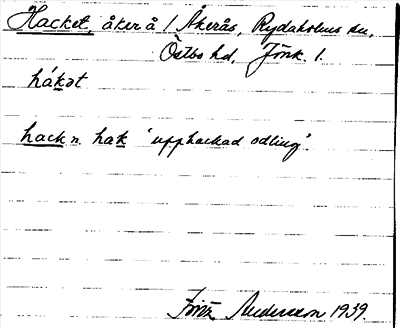 Hacket, åker å 1 Åkerås, Rydaholms sn,
Östbo hd, Jönk. l.
hákət
hack n. hak 'upphackad odling'.
Fritz Andersson 1939.